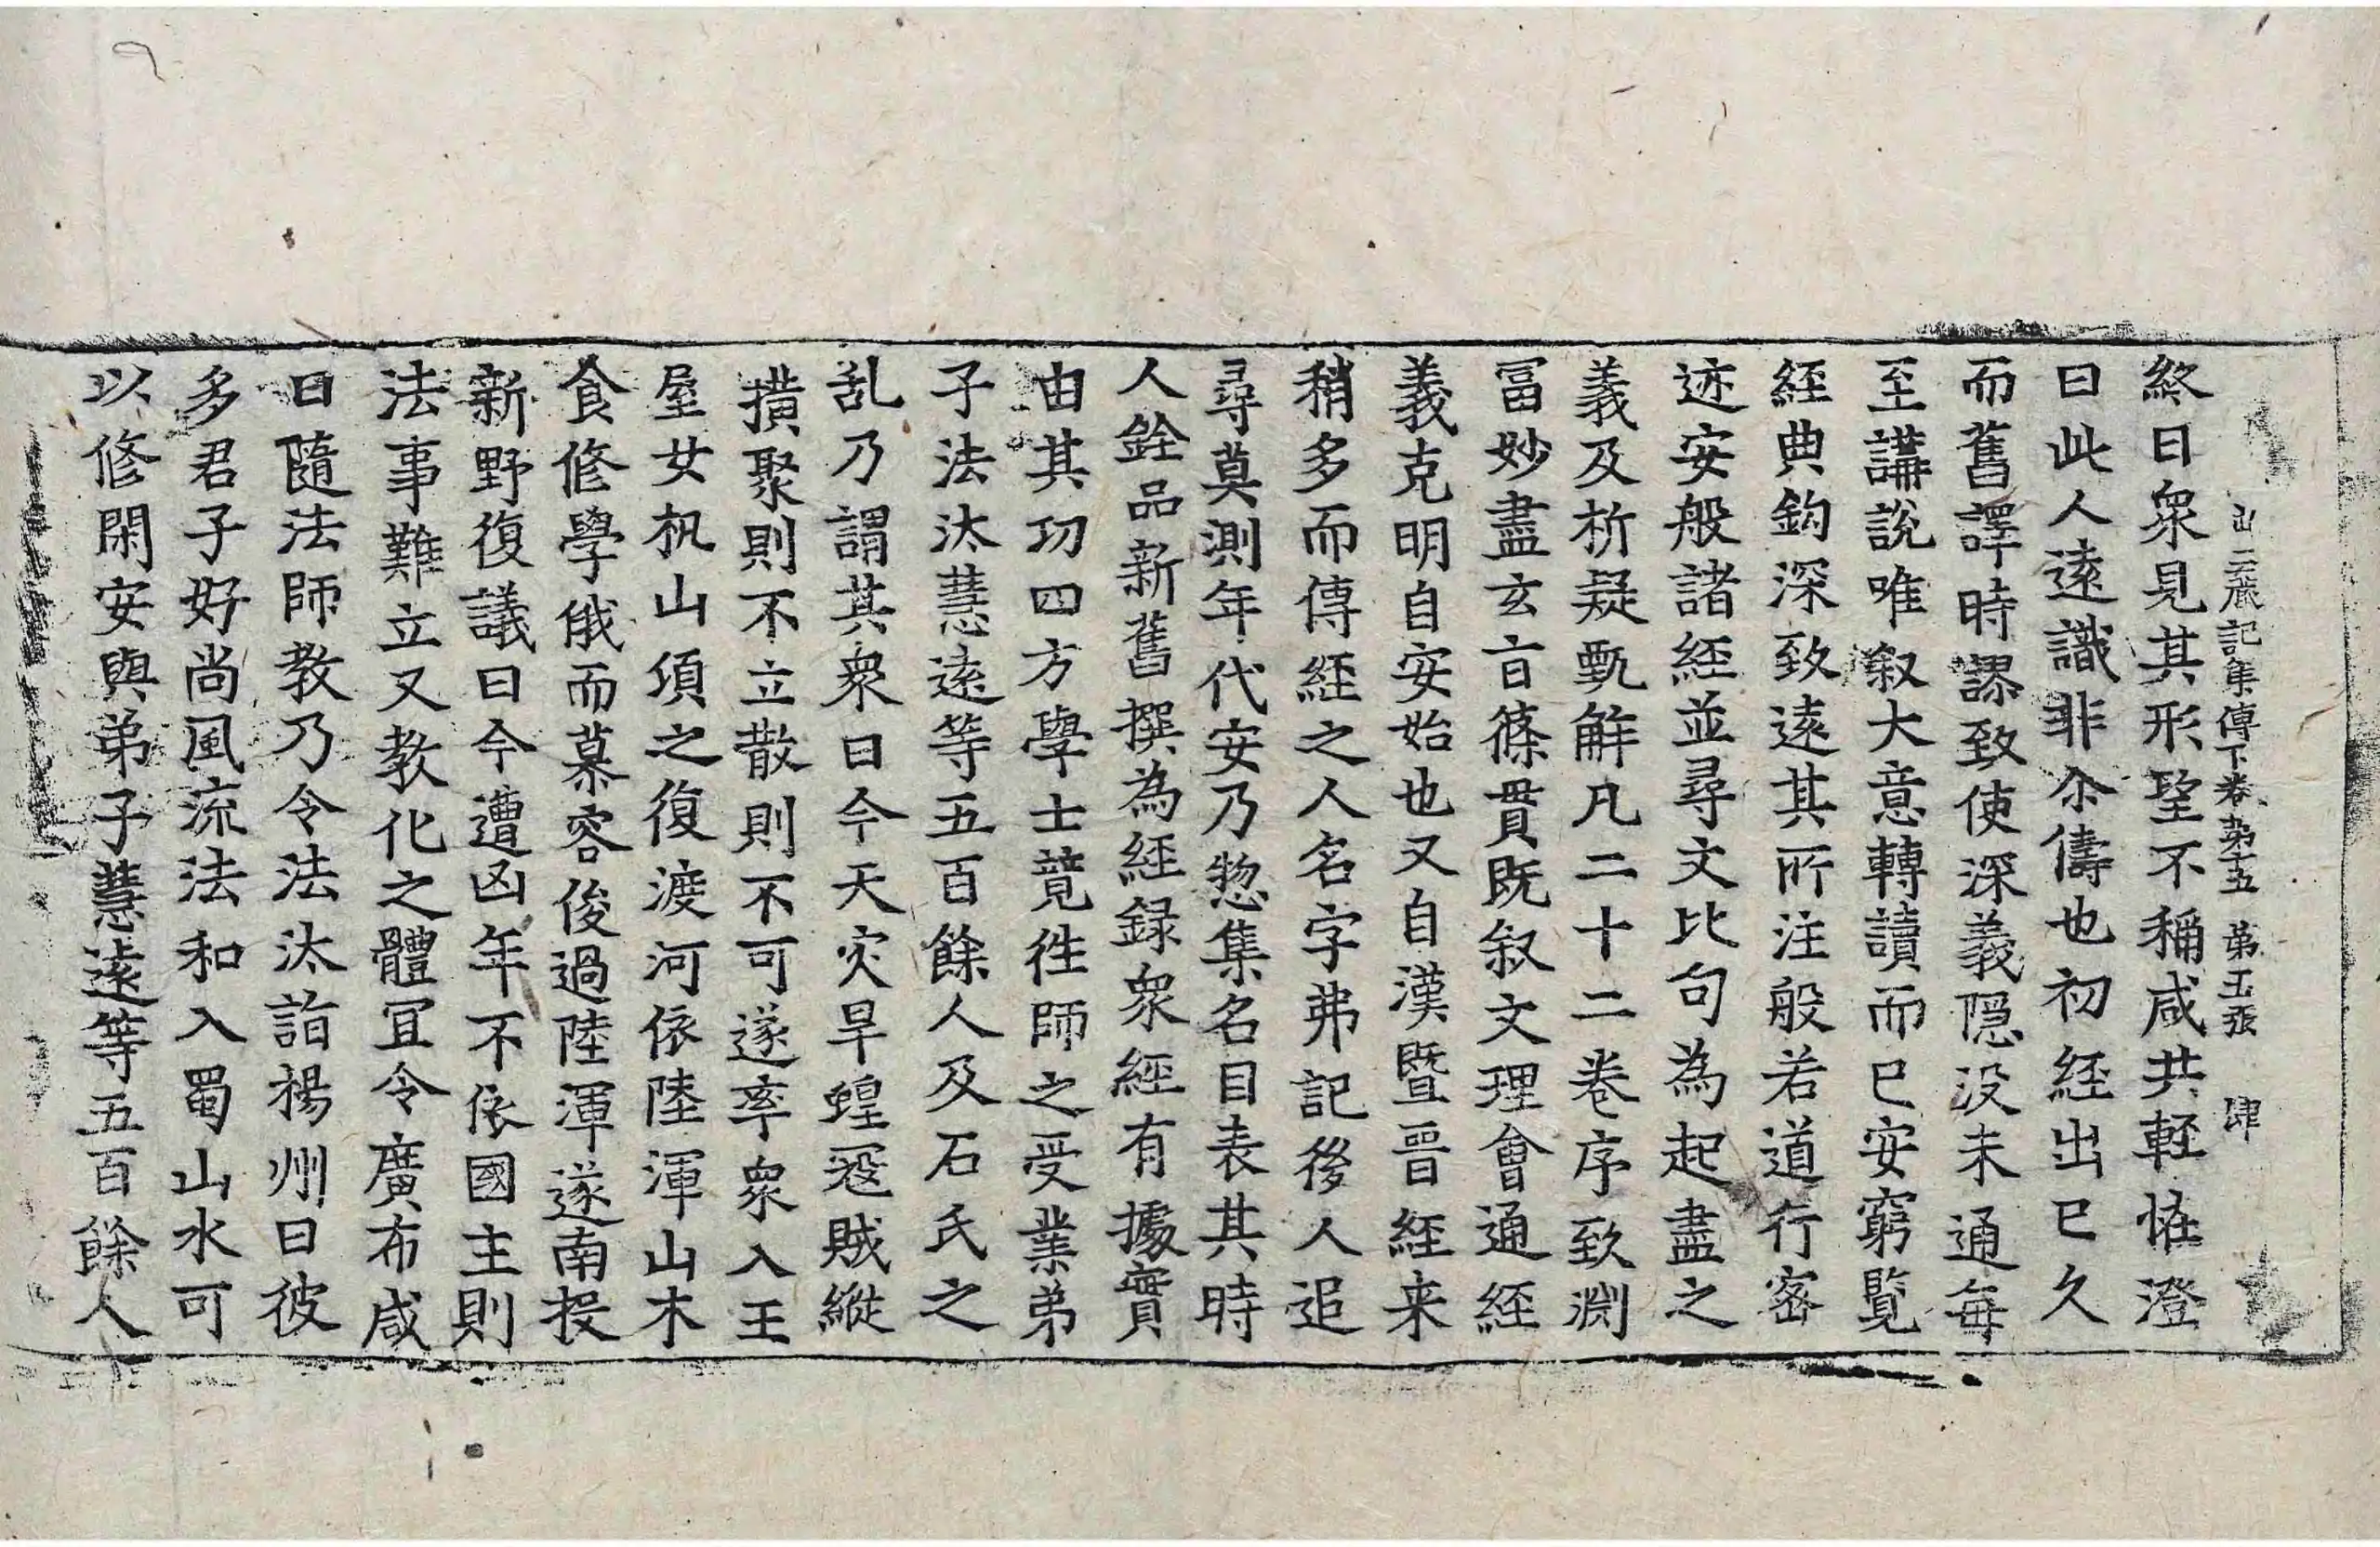 出三藏記集傳下卷第十五 第五張 肆
終日衆見其形望不稱咸共輕恠澄
曰此人遠識非尒儔也初經出已久
而舊譯時謬致使深義隱没未通每
至講說唯叙大意轉讀而已安窮覽
經典鈎深致遠其所注般若道行密
迹安般諸經並尋文比句為起盡之
義及析疑甄解凡二十二卷序致淵
冨妙盡玄旨條貫既叙文理會通經
義克明自安始也又自漢暨晉經来
稍多而傳經之人名字弗記後人追
尋莫測年代安乃惣集名目表其時
人銓品新舊撰為經録衆經有據實
由其功四方學士競徃師之受業弟
子法汰慧遠等五百餘人及石氏之
乱乃謂其衆曰今天灾旱蝗寇賊縱
撗聚則不立散則不可遂率衆入王
屋女机山頃之復渡河依陸渾山木
食修學俄而慕容俊過陸渾遂南投
新野復議曰今遭凶年不依國主則
法事難立又教化之體冝令廣布咸
曰隨法師教乃令法汰詣楊州曰彼
多君子好尚風流法和入蜀山水可
以修閑安與弟子慧遠等五百餘人